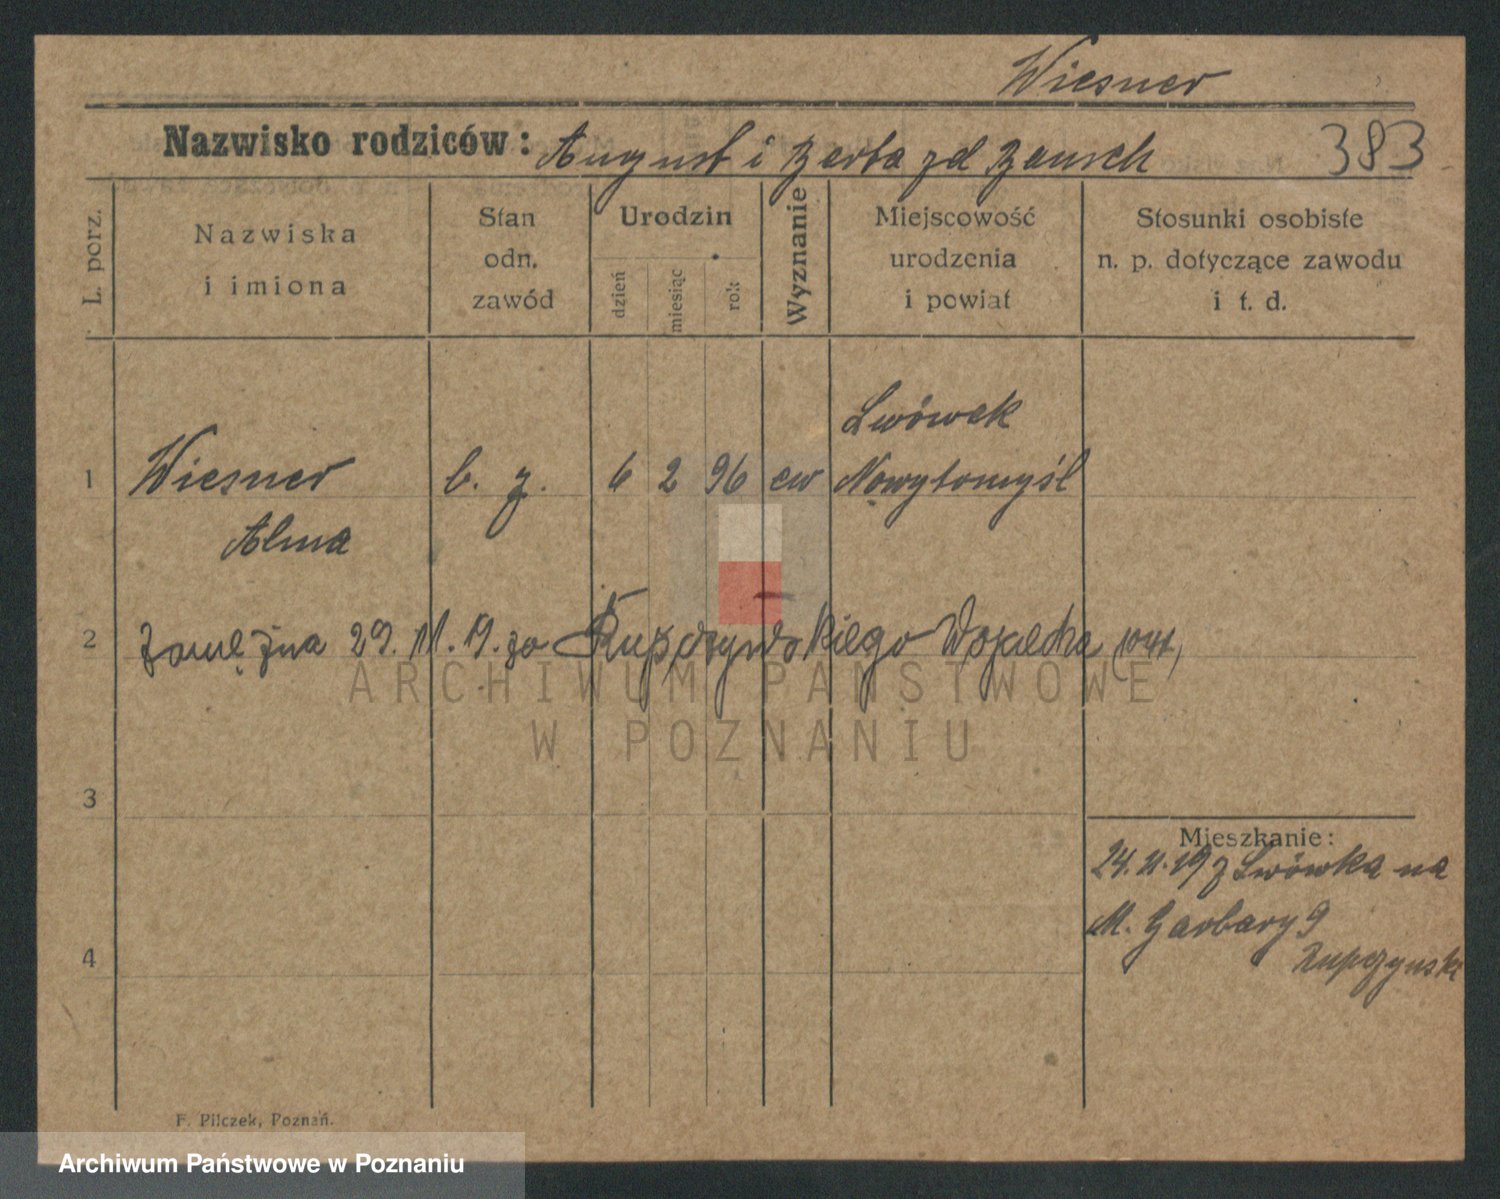 Wiesner
Nazwisko rodziców: August i Berta zd Bausch
383
L. porz.
Nazwiska
i imiona
Stan
odn.
zawód
Urodzin
dzień
miesiąc
rok
Wyznanie
Miejscowość
urodzenia
i powiat
Stosunki osobiste
n. p. dotyczące zawodu
i t. d.
Lwówek
1 Wiesner b. z. 6 2 96 ew Nowytomyśl
Alma
2 zamężna 29. 11. 19. za
3
4
Mieszkanie:
24. 11. 19 z Lwówka na
M. Garbary 9
F. Pilczek, Poznań.
ARCHIWUM PAŃSTWOWE
W POZNANIU
Archiwum Państwowe w Poznaniu